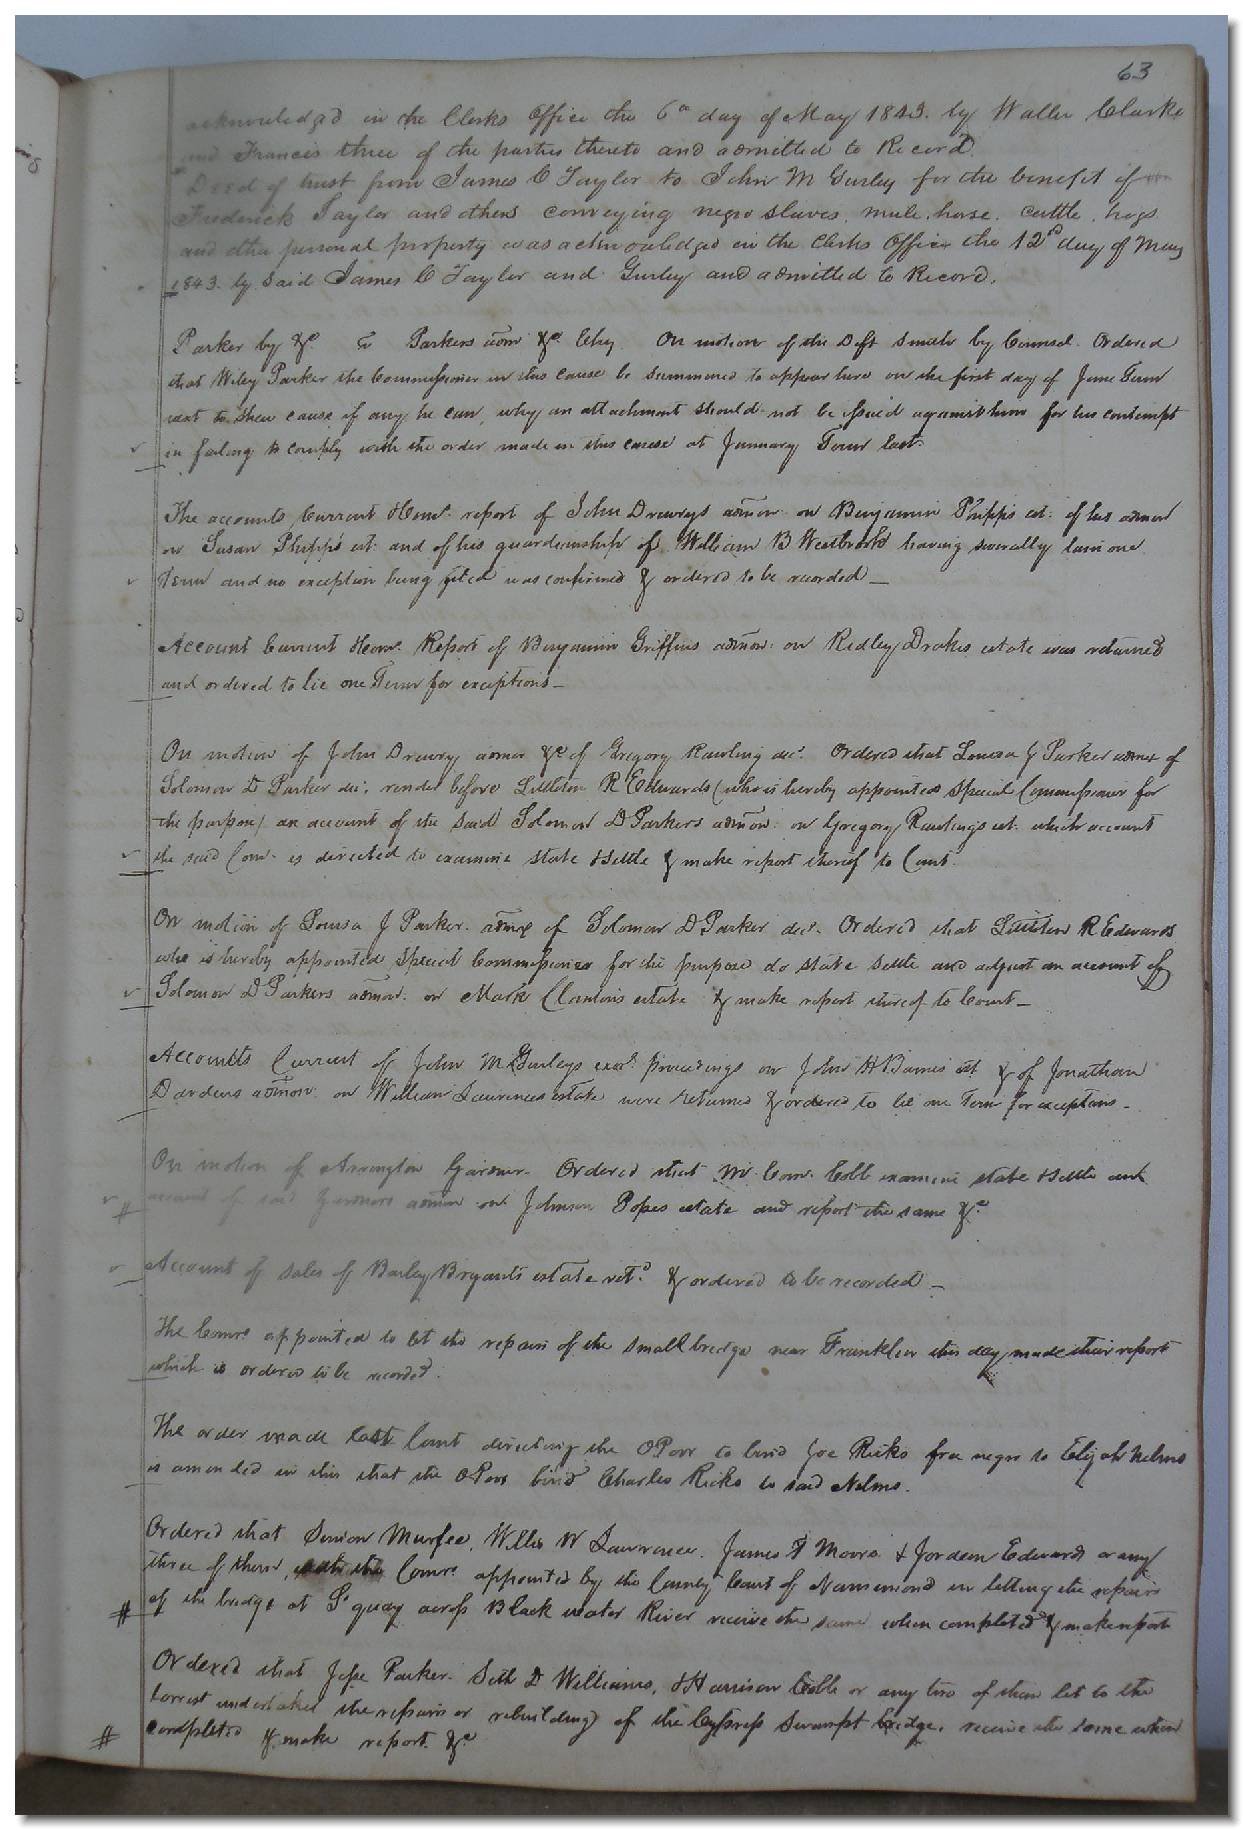 63
acknowledged in the Clerks Office the 6th day of May 1843. by Waller Clarke
and Francis three of the parties thereto and admitted to Record.
Deed of trust from James C Taylor to John M Gurley for the benefit of
Frederick Taylor and others conveying negro slaves, mule, horse, cattle, hogs
and other personal property was acknowledged in the Clerks Office the 12th day of May
1843. by said James C Taylor and Gurley and admitted to Record.
Parker by &c. vs Parkers admr &c. Chy On motion of the Deft Smith by Counsel. Ordered
that Wiley Parker the Commissioner in this cause be summoned to appear here on the first day of June Term
next to shew cause if any he can, why an attachment should not be issued against him for his contempt
in failing to comply with the order made in this cause at January Term last.
The accounts Current & Comrs. report of John Drewrys admon on Benjamin Phipps est. of his admon
on Susan Phipps est. and of his guardianship of William B Westbrook having severally lain one
Term and no exception being filed was confirmed & ordered to be recorded —
Account Current & Comr. Report of Benjamin Griffins admon. on Ridley Drakes estate was returned
and ordered to lie one Term for exceptions —
On motion of John Drewry admor &c of Gregory Rawlings dec. Ordered that Louisa J Parker admx of
Solomon D Parker dec. render before Littleton R Edwards (who is hereby appointed Special Commissioner for
the purpose) an account of the said Solomon D Parkers admon. on Gregory Rawlings est. which account
the said Com. is directed to examine state & settle & make report thereof to Court.
On motion of Louisa J Parker. admx of Solomon D Parker dec. Ordered that Littleton R Edwards
who is hereby appointed Special Commissioner for the purpose do state settle and adjust an account of
Solomon D Parkers admon. on Mark Clantons estate & make report thereof to Court —
Accounts Current of John M Gurleys exors. proceedings on John H Barnes est. & of Jonathan
Dardens admon. on William Lawrences estate were returned & ordered to lie one Term for exceptions —
On motion of Arrington Garner. Ordered that Mr. Com. Cobb examine state & settle an
account of said Garners admon on Johnson Popes estate and report the same &c.
#
Account of sales of Barley Bryants estate retd. & ordered to be recorded —
The Comrs appointed to let the repairs of the small bridge near Franklin this day made their report
which is ordered to be recorded.
The order made last Court directing the OPoor to bind Joe Ricks free negro to Elijah Nelms
is amended in this that the OPoor bind Charles Ricks to said Nelms.
Ordered that Simon Murfee, Willis W Lawrence, James Moore & Jordan Edwards or any
three of them, with the Comrs. appointed by the County Court of Nansemond in letting the repairs
of the bridge at S. quay across Black water River receive the same when completed & make report
#
Ordered that Jesse Parker. Seth D Williams, & Harrison Cobb or any two of them let to the
lowest undertaker the repairs or rebuilding of the Cypress Swamp bridge. receive the same when
completed & make report. &c
#